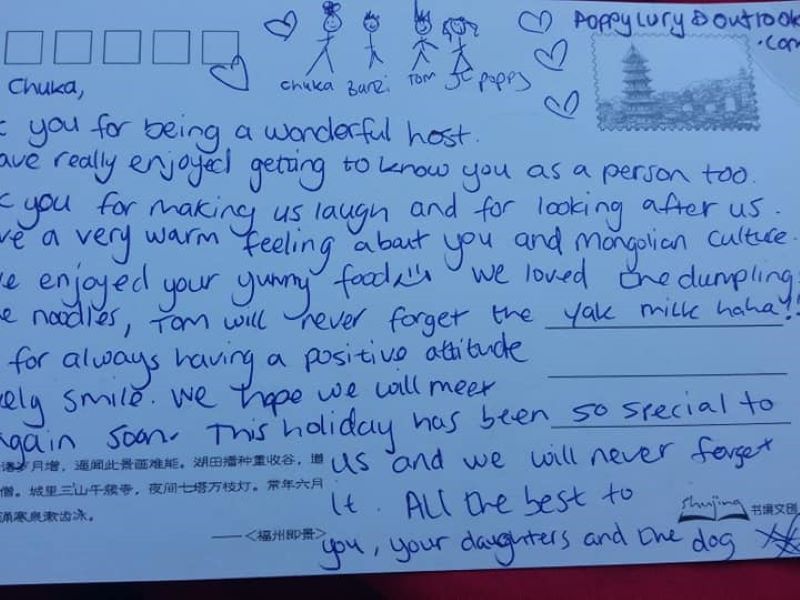 Poppylury@outlook
.com
Chuka Banzi Tom JC Poppy
Chuka,
you for being a wonderful host.
ave really enjoyed getting to know you as a person too.
you for making us laugh and for looking after us.
ve a very warm feeling about you and Mongolian culture.
ve enjoyed your yummy food we loved the dumplings
e noodles, Tom will never forget the yak milk haha!!
for always having a positive attitude
ely smile. We hope we will meet
again soon. This holiday has been so special to
岁月增，遥闻此景画难能。湖田播种重收谷，道
us and we will never forget
僧。城里三山千簇寺，夜间七塔万枝灯。常年六月
it. All the best to
涌寒泉漱齿冰。
shujing 书境文创
——<福州即景>
you, your daughters and the dog